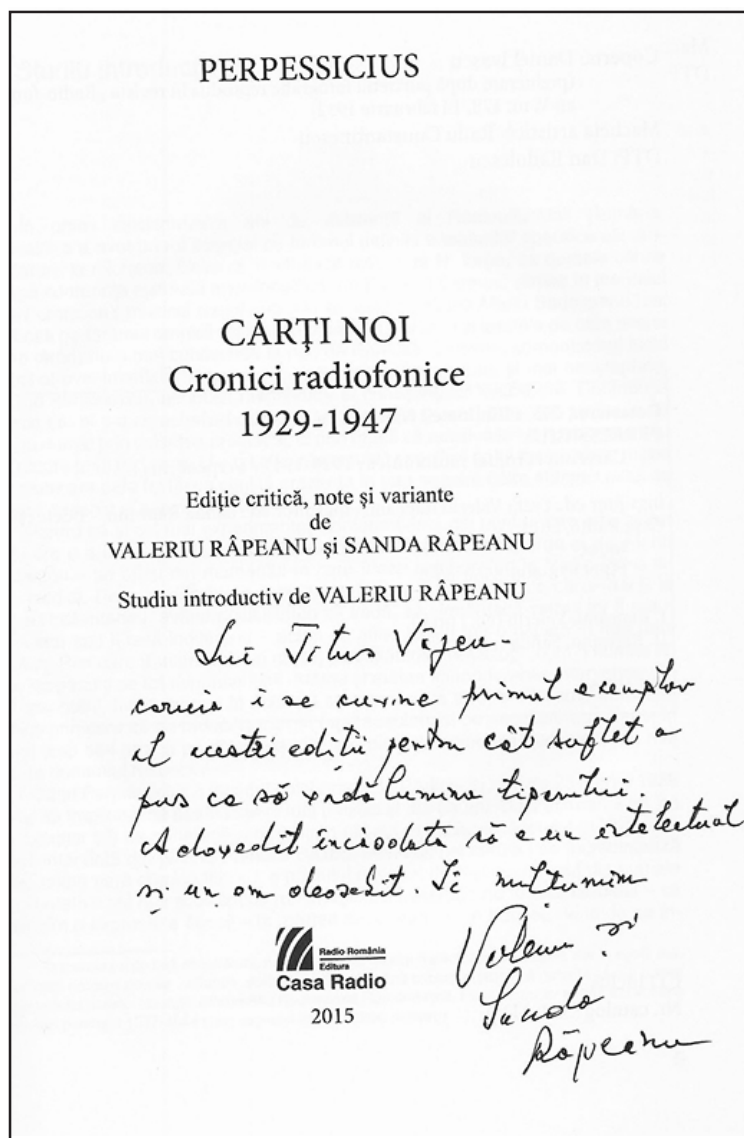 PERPESSICIUS
CĂRŢI NOI
Cronici radiofonice
1929-1947
Ediţie critică, note şi variante
de
VALERIU RÂPEANU şi SANDA RÂPEANU
Studiu introductiv de VALERIU RÂPEANU
Lui Titus Vîjeu -
căruia i se cuvine primul exemplar
al acestei ediţii pentru cât suflet a
pus ca să vadă lumina tiparului.
A dovedit încăodată că e un intelectual
şi un om deosebit. Îi mulţumim
Valeriu şi
Sanda
Râpeanu
Radio România
Editura
Casa Radio
2015